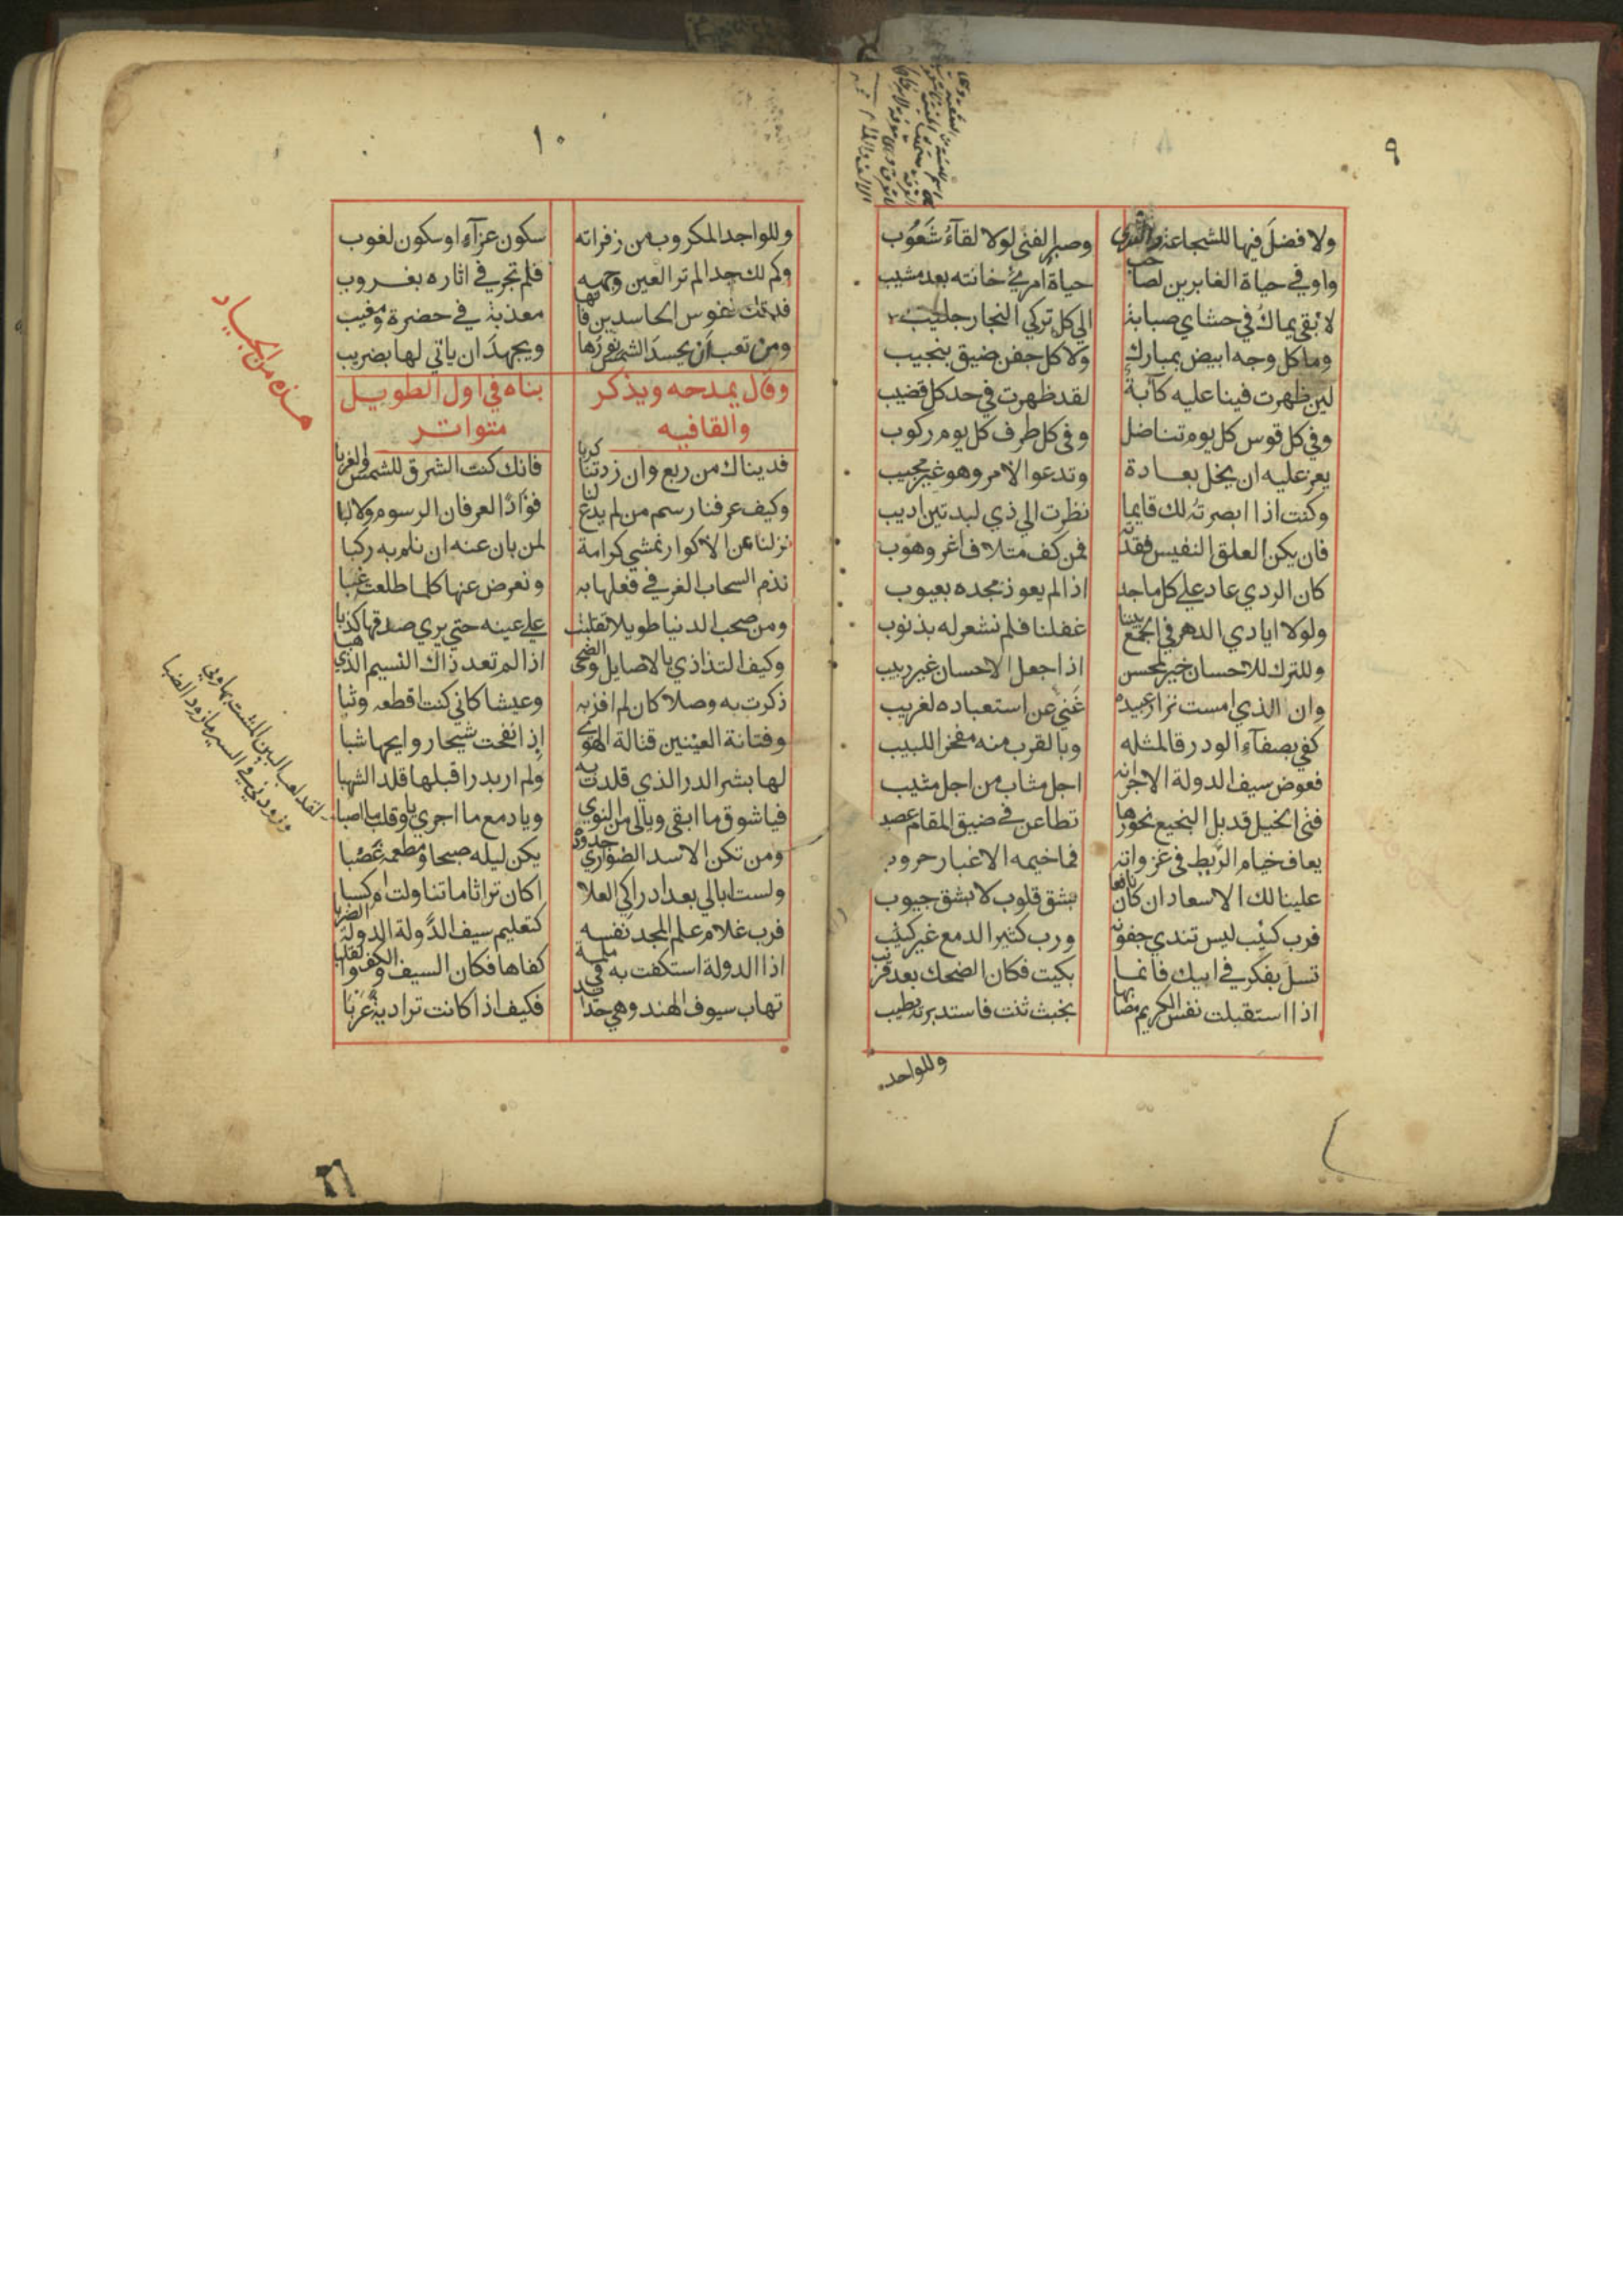 ٩
ولا فضل فيها للشجاعة والندى وصبر الفتى لولا لقآء شعوب
واوفي حياة الغابرين لصاحب حياة امرئ خانته بعد مشيب
لابقي يماك في حشاي صبابة الي كل تركي النجار جليب
وما كل وجه ابيض بمبارك ولا كل جفن ضيق بنجيب
لين ظهرت فينا عليه كآبة لقد ظهرت في حد كل قضيب
وفي كل قوس كل يوم تناضل وفي كل طرف كل يوم ركوب
يعز عليه ان يخل بعادة وتدعوا لامر وهو غير مجيب
وكنت اذا ابصرته لك قايما نظرت الي ذي لبدتين اديب
فان يكن العلق النفيس فقدته فمن كف متلاف اغر وهوب
كان الردي عاد علي كل ماجد اذا لم يعوذ مجده بعيوب
ولولا ايادي الدهر في الجمع بيننا غفلنا فلم نشعر له بذنوب
وللترك للاحسان خير لمحسن اذا جعل الاحسان غير ربيب
وان الذي امست نزار عبيده غني عن استعباده لغريب
كفي بصفآء الود رقا لمثله وبالقرب منه مفخرا للبيب
فعوض سيف الدولة الاجر انه اجل مثاب من اجل مثيب
فتى الخيل قد بل النجيع نحورها تطاعن في ضيق المقام عصيب
يعاف خيام الريط في غزواته فما خيمه الا غبار حروب
علينا لك الاسعاد ان كان نافعا بشق قلوب لا بشق جيوب
فرب كئيب ليس تندي جفونه ورب كثير الدمع غير كئيب
تسل بفكر في ابيك فانما بكيت فكان الضحك بعد قريب
اذا استقبلت نفس الكريم مصابها بخبث ثنت فاستدبرته بطيب
وللواجد
١٠
وللواجد المكروب من زفراته سكون عزآء او سكون لغوب
وكم لك جدا لم تر العين وجهه فلم تجر في اثاره بغروب
فدتك نفوس الحاسدين فانها معذبة في حضرة ومغيب
ومن تعب ان يحسد الشمس نورها ويجهد ان ياتي لها بضريب
وقال يمدحه ويذكر بناه في اول الطويل
والقافيه متواتر
فديناك من ربع وان زدتنا كربا فانك كنت الشرق للشمس والغربا
وكيف عرفنا رسم من لم يدع لنا فؤادا لعرفان الرسوم ولا لبا
نزلنا عن الاكوار نمشي كرامة لمن بان عنه ان نلم به ركبا
نذم السحاب الغر في فعلها به ونعرض عنها كلما طلعت عتبا
ومن صحب الدنيا طويلا تقلبت علي عينه حتي يري صدقها كذبا
وكيف التذاذي بالاصايل والضحى اذا لم تعد ذاك النسيم الذي هبا
ذكرت به وصلا كان لم افز به وعيشا كاني كنت اقطعه وثبا
وفتانة العينين قتالة الهوي اذا نفحت شيخا روايحها شبا
لها بشر الدر الذي قلدت به ولم ار بدرا قبلها قلد الشهبا
فيا شوق ما ابقى ويالي من النوي ويا دمع ما اجري ويا قلب ما اصبا
لقد لعب البين المشت بها وبي
وزودني في السير ما زود الضبا
ومن تكن الاسد الضواري جدوده يكن ليله صبحا ومطعمه غصبا
ولست ابالي بعد ادراكي العلا اكان تراثا ما تناولت ام كسبا
فرب غلام علم المجد نفسه كتعليم سيف الدولة الدولة الضربا
اذا الدولة استكفت به في ملمة كفاها فكان السيف والكف والقلبا
تهاب سيوف الهند وهي حدايد فكيف اذا كانت نزارية عربا
هذه من الجياد